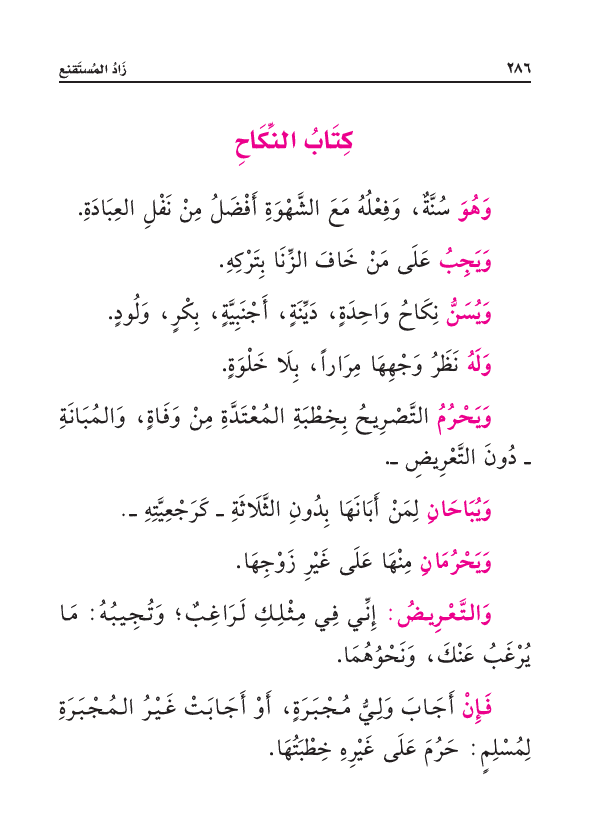 ٢٨٦
زَادُ المُستَقنِعِ
كِتَابُ النِّكَاحِ
وَهُوَ سُنَّةٌ، وَفِعْلُهُ مَعَ الشَّهْوَةِ أَفْضَلُ مِنْ نَفْلِ العِبَادَةِ.
وَيَجِبُ عَلَى مَنْ خَافَ الزِّنَا بِتَرْكِهِ.
وَيُسَنُّ نِكَاحُ وَاحِدَةٍ، دَيِّنَةٍ، أَجْنَبِيَّةٍ، بِكْرٍ، وَلُودٍ.
وَلَهُ نَظَرُ وَجْهِهَا مِرَاراً، بِلَا خَلْوَةٍ.
وَيَحْرُمُ التَّصْرِيحُ بِخِطْبَةِ المُعْتَدَّةِ مِنْ وَفَاةٍ، وَالمُبَانَةِ
ـ دُونَ التَّعْرِيضِ ـ.
وَيُبَاحَانِ لِمَنْ أَبَانَهَا بِدُونِ الثَّلَاثَةِ ـ كَرَجْعِيَّتِهِ ـ.
وَيَحْرُمَانِ مِنْهَا عَلَى غَيْرِ زَوْجِهَا.
وَالتَّعْرِيضُ: إِنِّي فِي مِثْلِكِ لَرَاغِبٌ؛ وَتُجِيبُهُ: مَا
يُرْغَبُ عَنْكَ، وَنَحْوُهُمَا.
فَإِنْ أَجَابَ وَلِيُّ مُجْبَرَةٍ، أَوْ أَجَابَتْ غَيْرُ المُجْبَرَةِ
لِمُسْلِمٍ: حَرُمَ عَلَى غَيْرِهِ خِطْبَتُهَا.